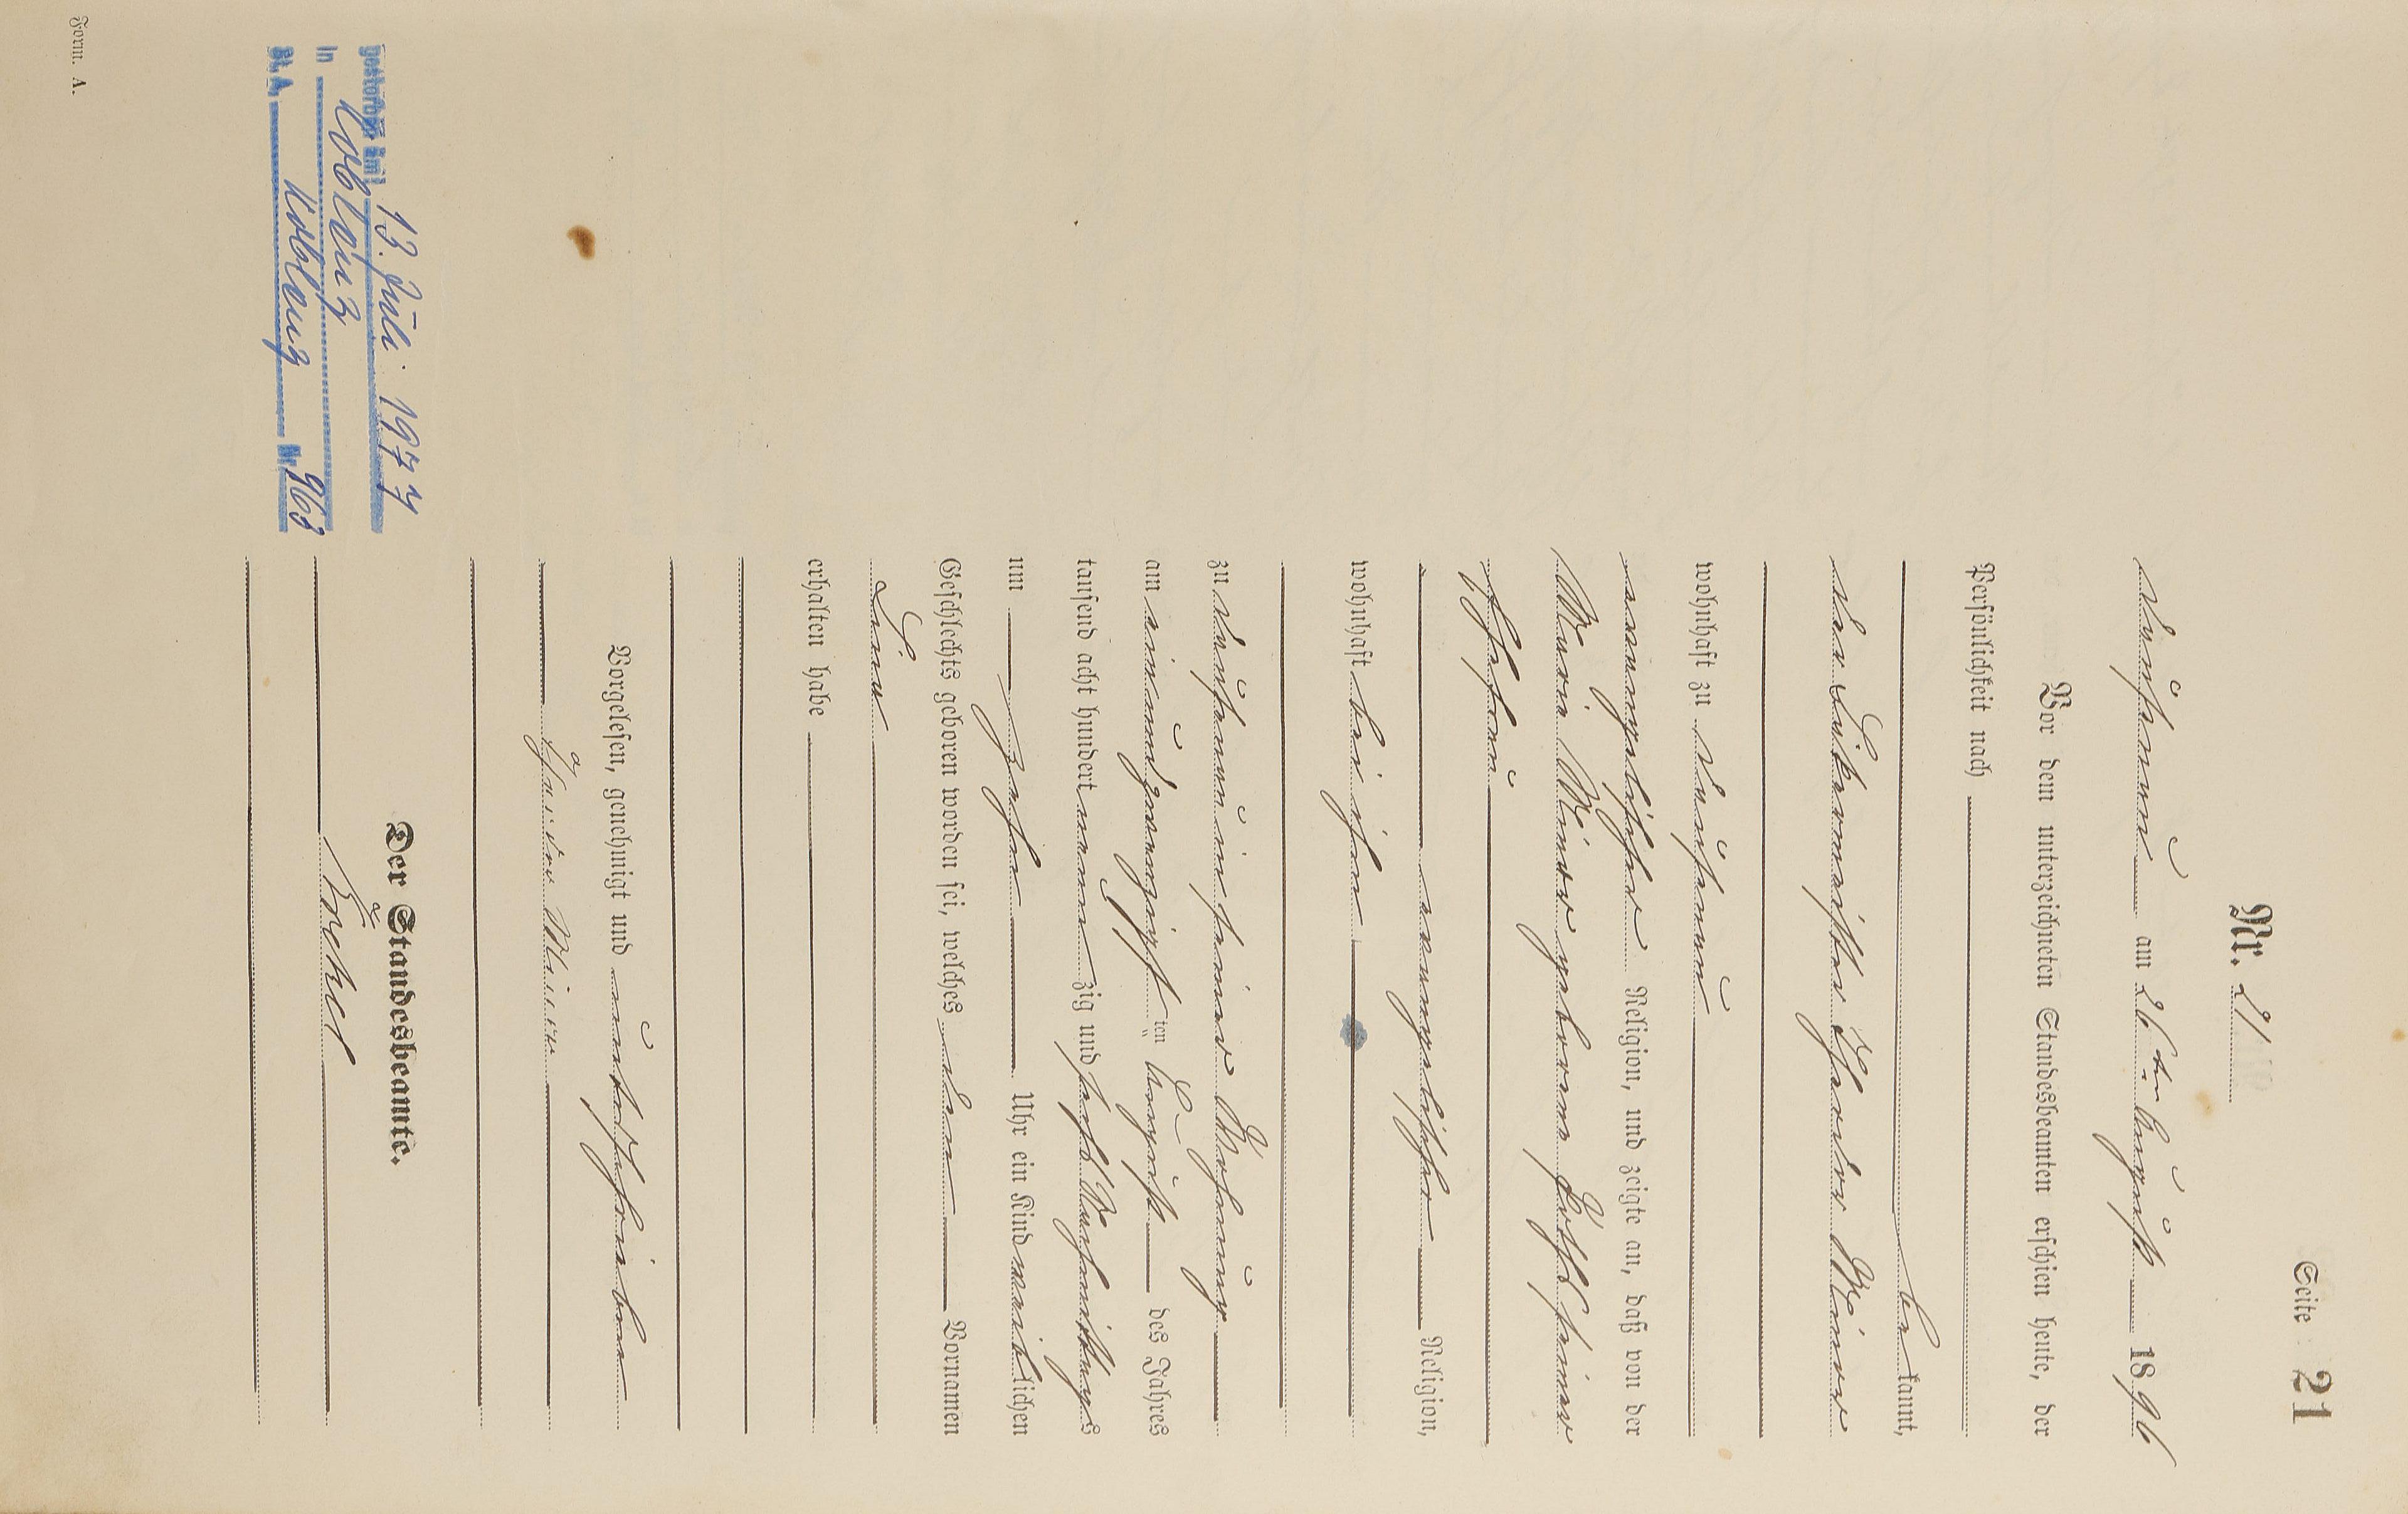 Seite 21
Nr. 21
am 26ten August 1896
Vor dem unterzeichneten Standesbeamten erschien heute, der
Persönlichkeit nach
bekannt,
der
wohnhaft zu
evangelischer Religion, und zeigte an, daß von der
geborene
evangelischer Religion,
wohnhaft bei ihm
zu in seiner Wohnung
am einundzwanzigsten August des Jahres
tausend acht hundert neunzig und sechs Nachmittags
um zehn Uhr ein Kind weiblichen
Geschlechts geboren worden sei, welches den Vornamen
Lina
erhalten habe
Vorgelesen, genehmigt und unterschrieben
Der Standesbeamte.
gestorben am 13. Juli 1977
in Koblenz
St. A. Koblenz Nr. 963
Form. A.